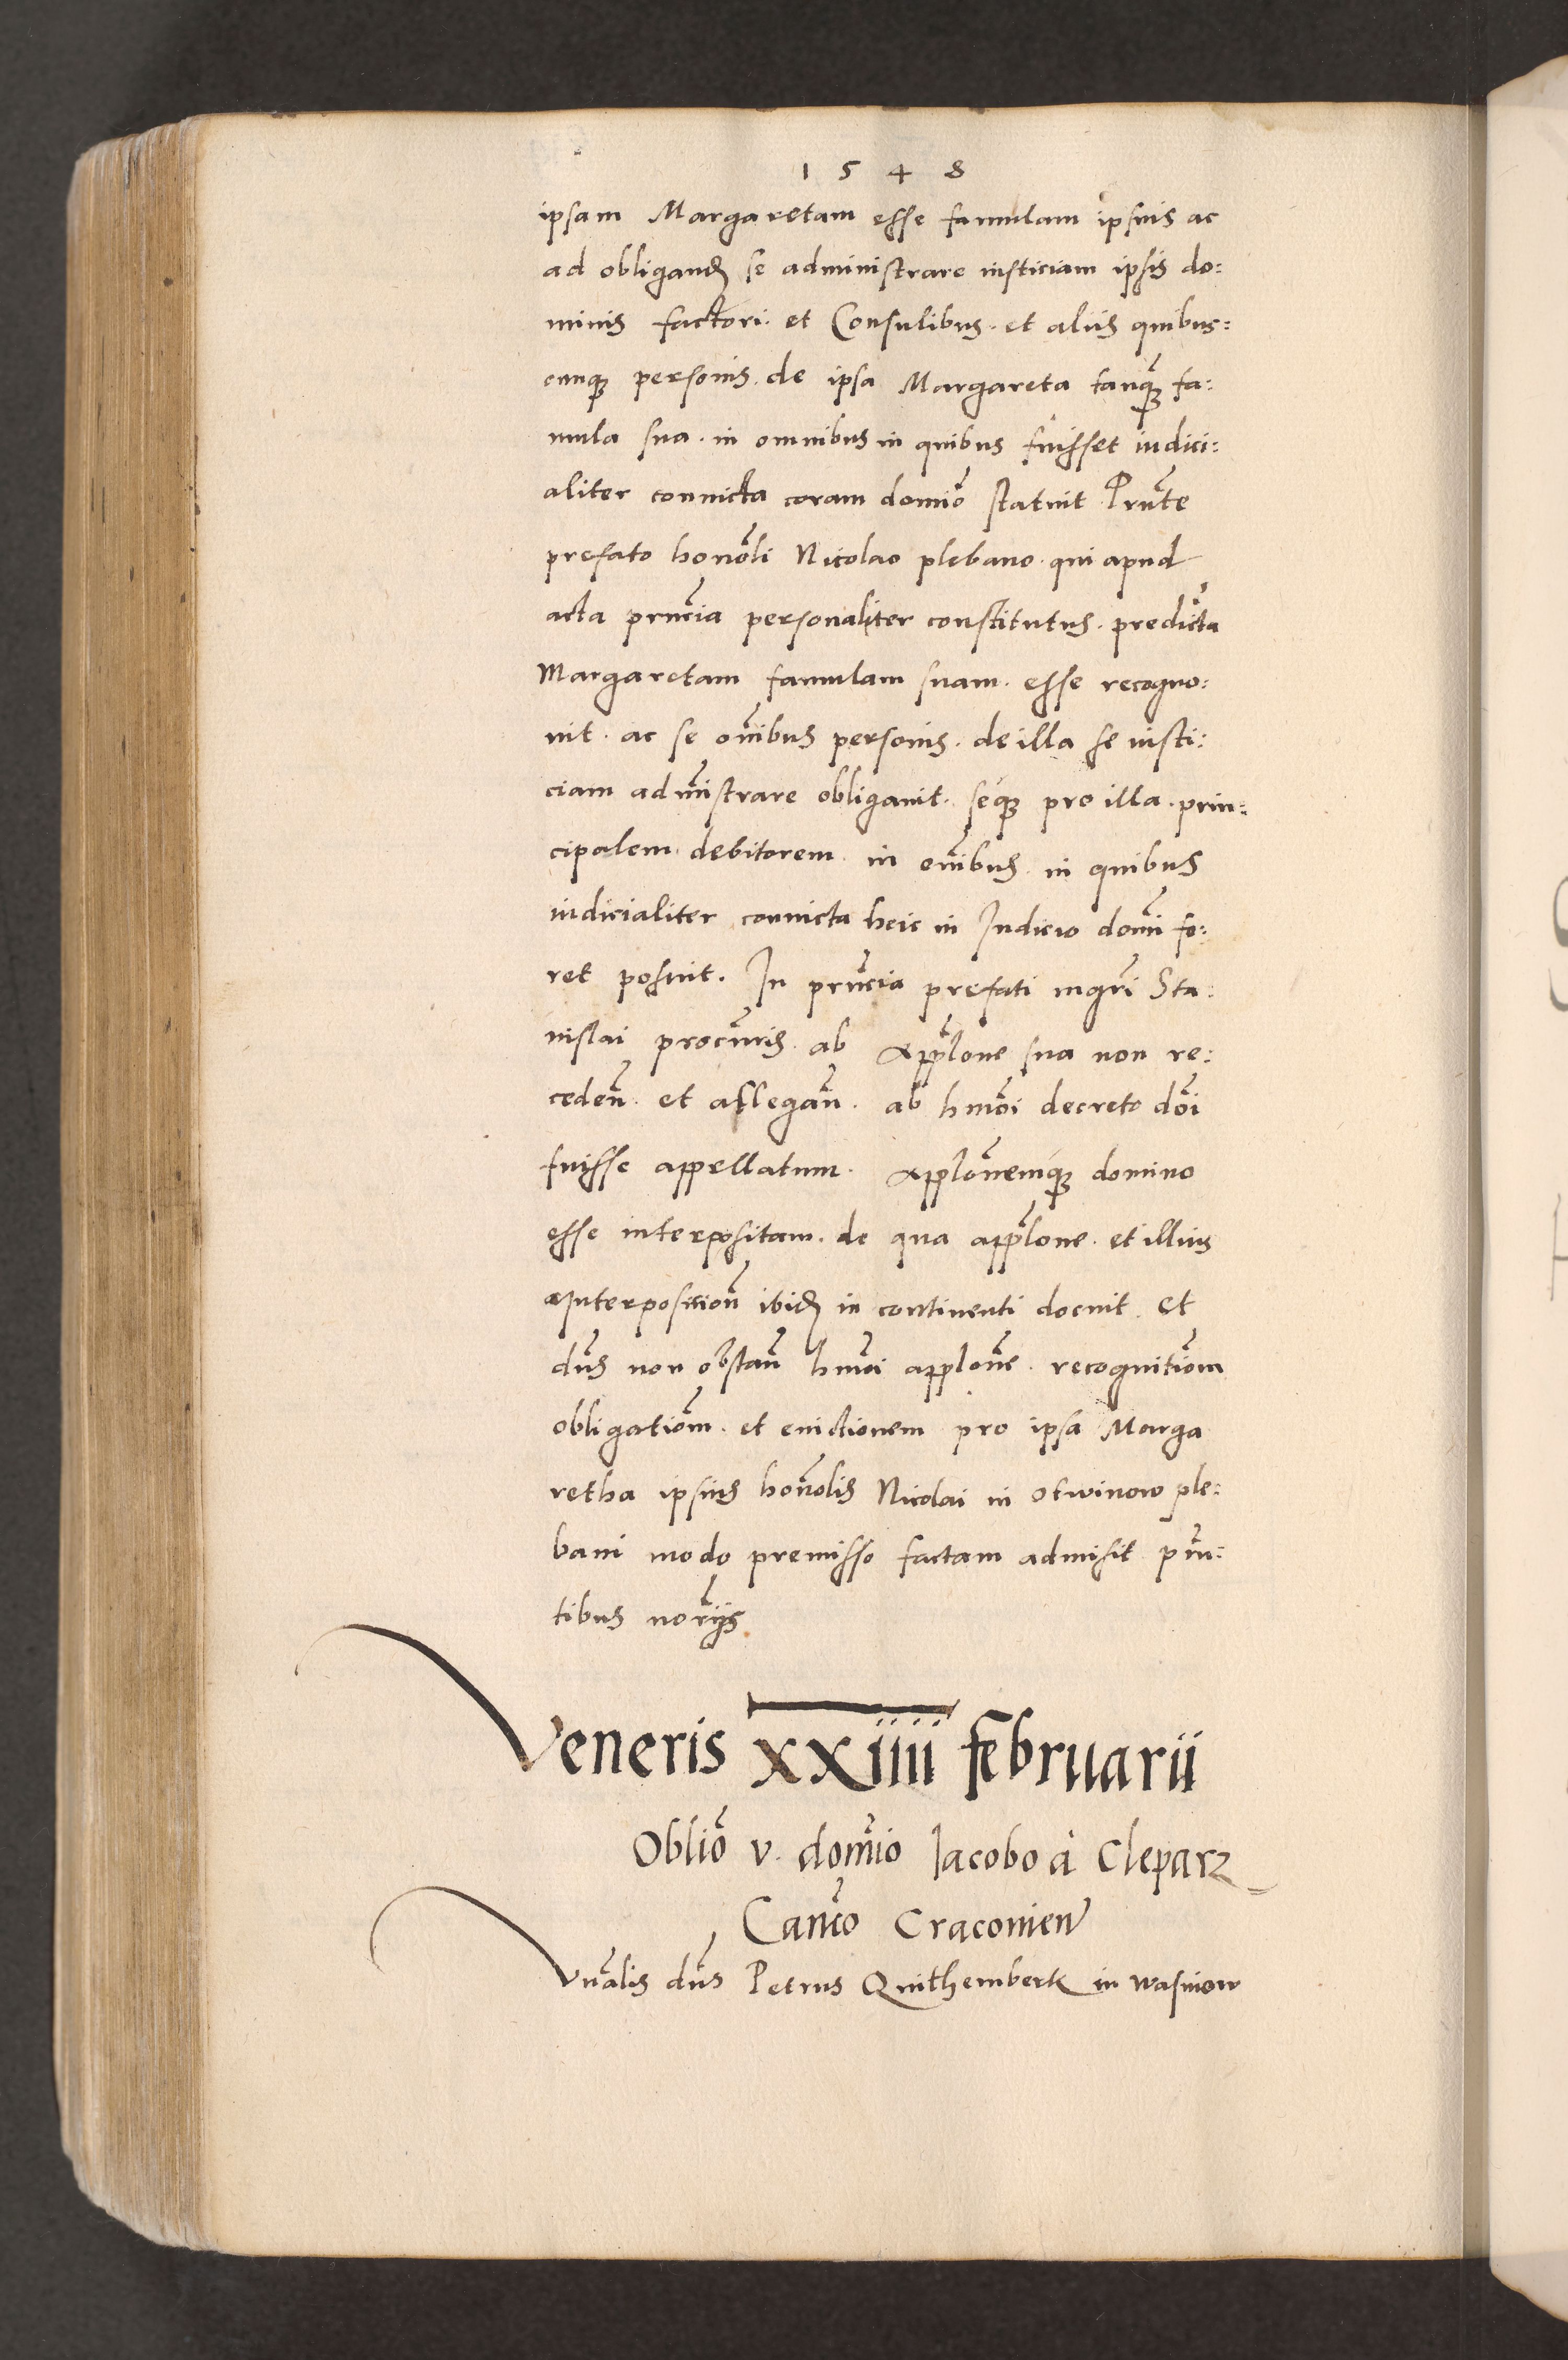 1 5 4 8
ipsam Margaretam esse famulam ipsius ac
ad obligand se administrare iusticiam ipsis do:
minis factori et Consulibus et aliis quibus:
cunq personis de ipsa Margareta tanq̃ fa:
mula sua in omnibus in quibus fuisset iudici:
aliter conuicta coram domiõ statuit Prñte
prefato honõli Nicolao plebano qui apud
acta prñcia personaliter constitutus predictã
Margaretam famulam suam esse recogno:
uit ac se oñibus personis de illa se iusti:
ciam admĩstrare obligauit seq pro illa prin:
cipalem debitorem in oñibus in quibus
iudicialiter conuicta heic in Iudicio domĩ fo:
ret posuit. In prñcia prefati mgrĩ Sta:
nislai procũris ab Applõne sua non re:
cedeñ et allegañ ab hmõi decreto dõi
fuisse appellatum Applõnemq domino
esse interpositam de qua applõne et illius
Interposicioñ ibid in continenti docuit et
dñs non obstañ hmõi applõne recognitiõm
obligatiõm et euictionem pro ipsa Marga
retha ipsius honõlis Nicolai in Otwinow ple:
bani modo premisso factam admisit prñ:
tibus norijs
Veneris xxiiii februarii
Obliõ v. domĩo Iacobo à Cleparz
Cañco Craconien
Vnãlis dñs Petrus Quithemberk in Wasniow